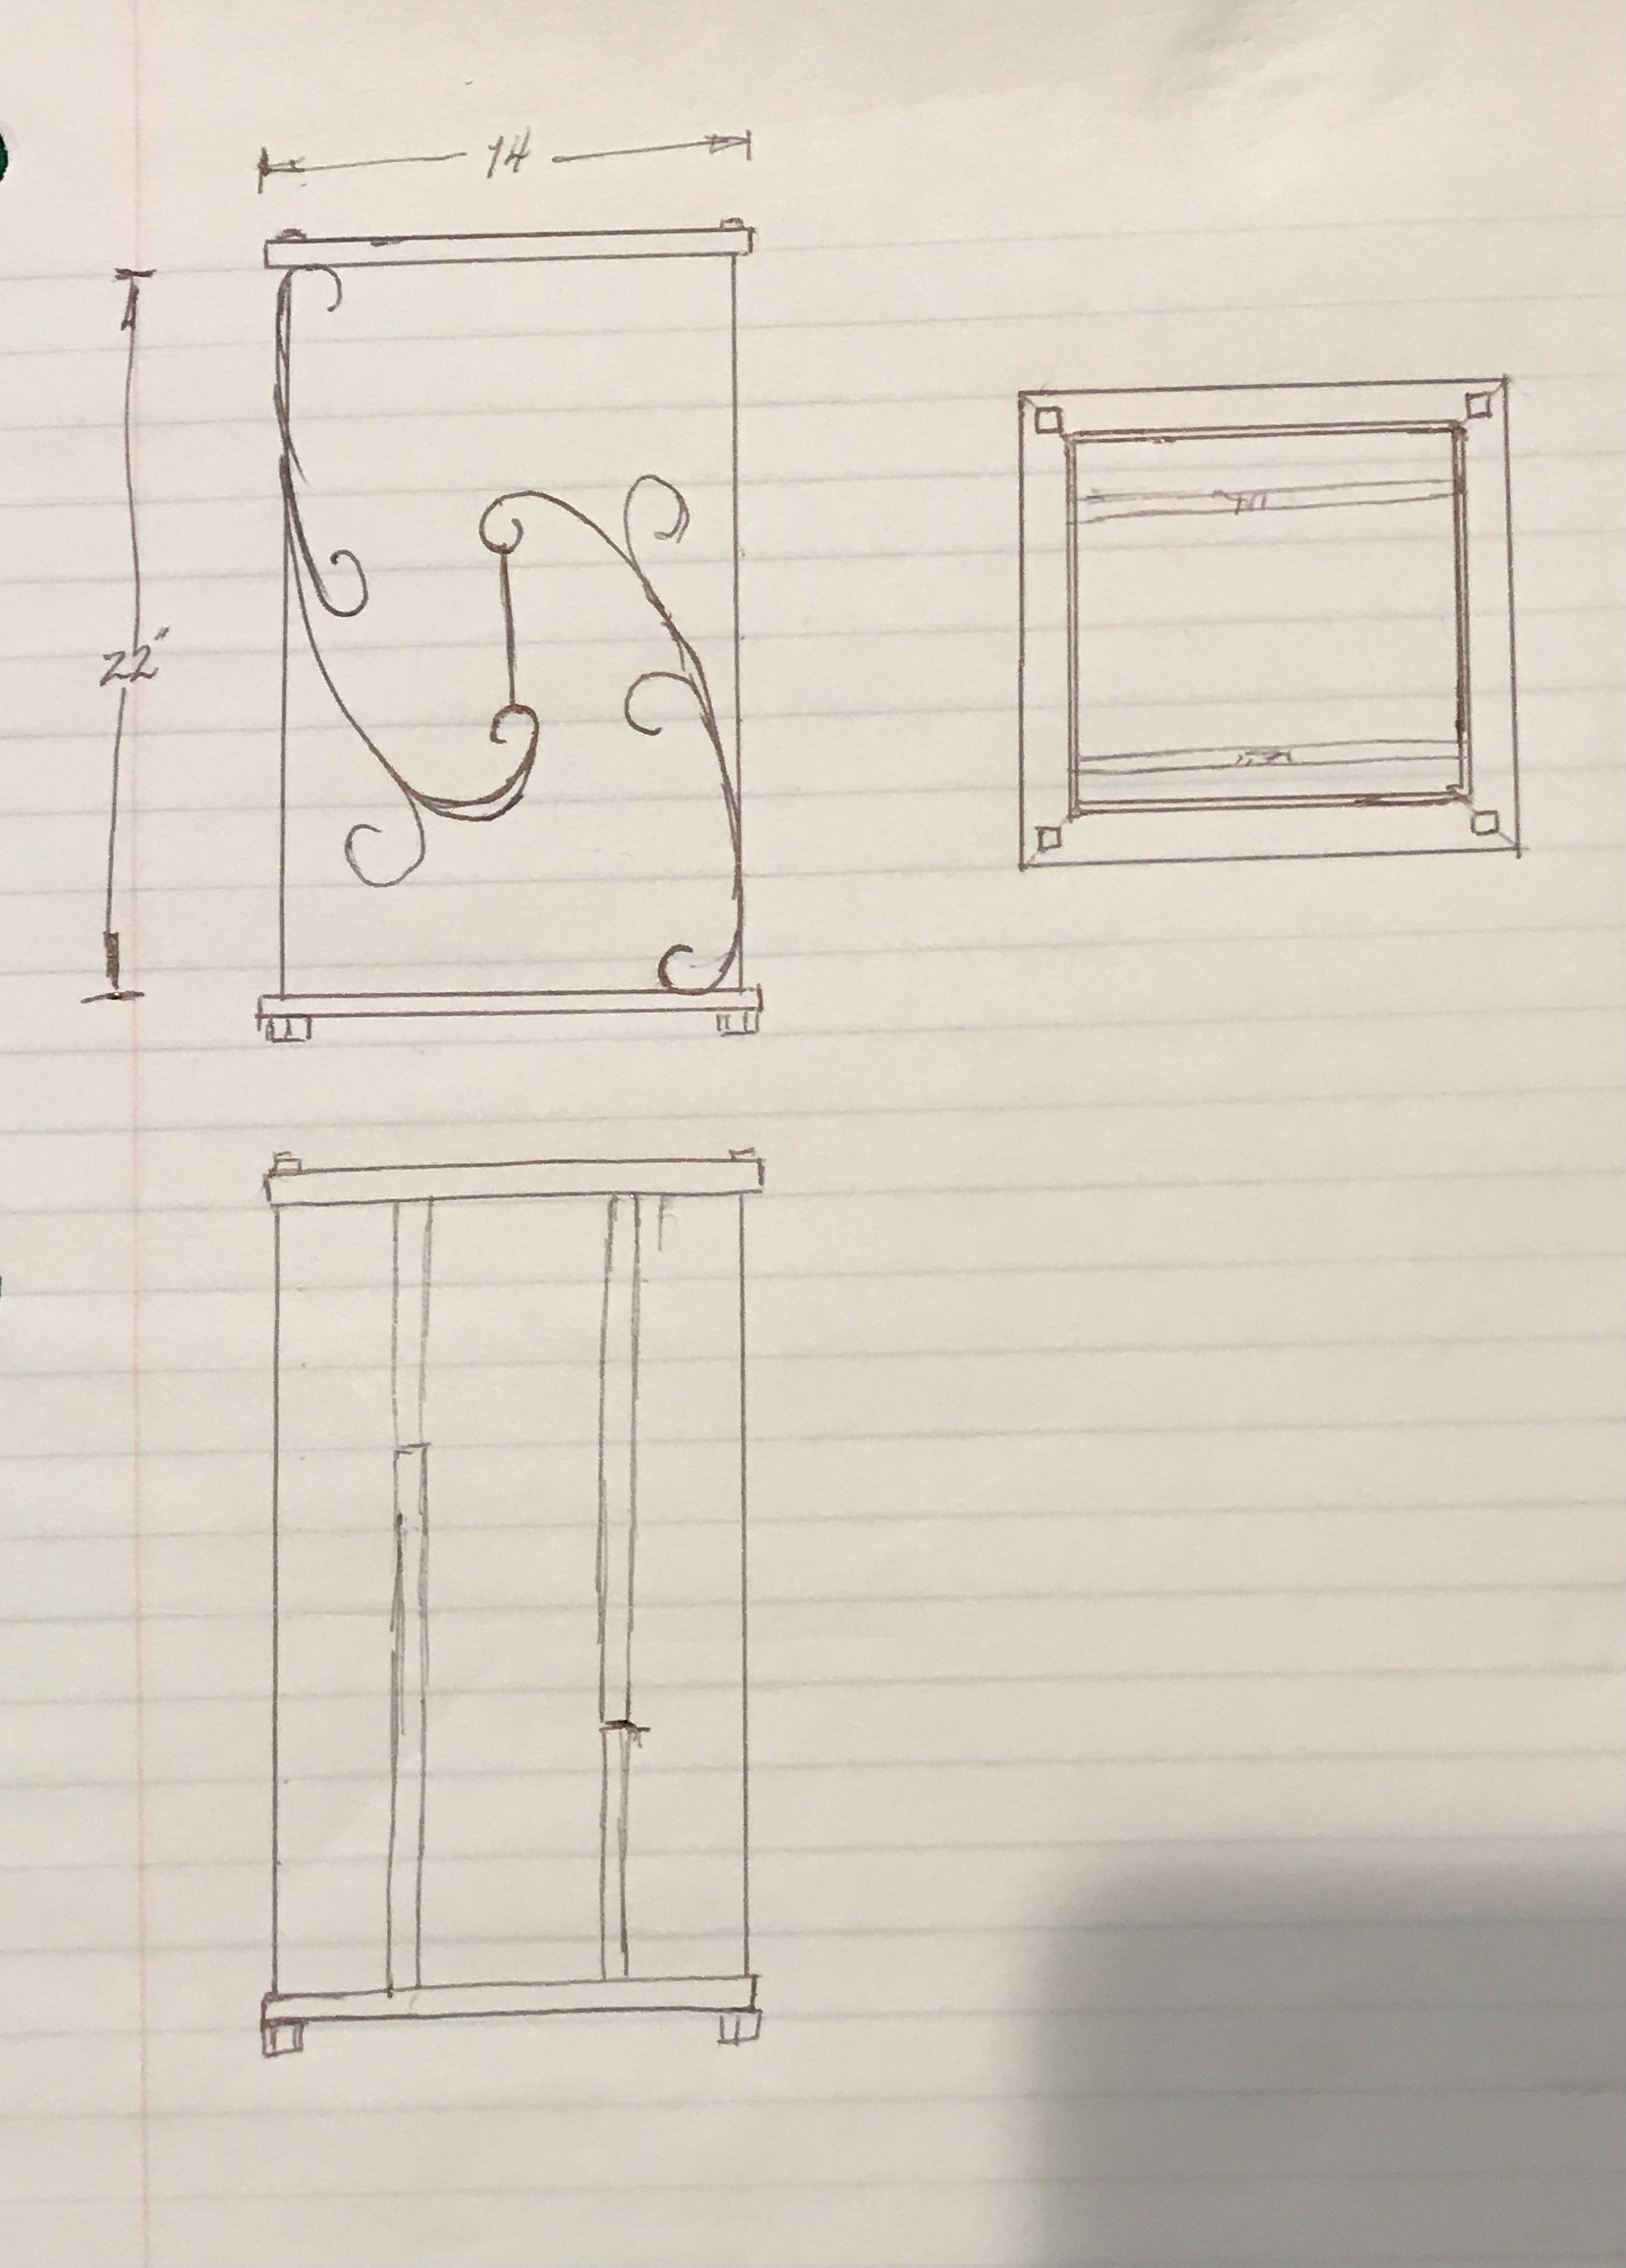 14
22"